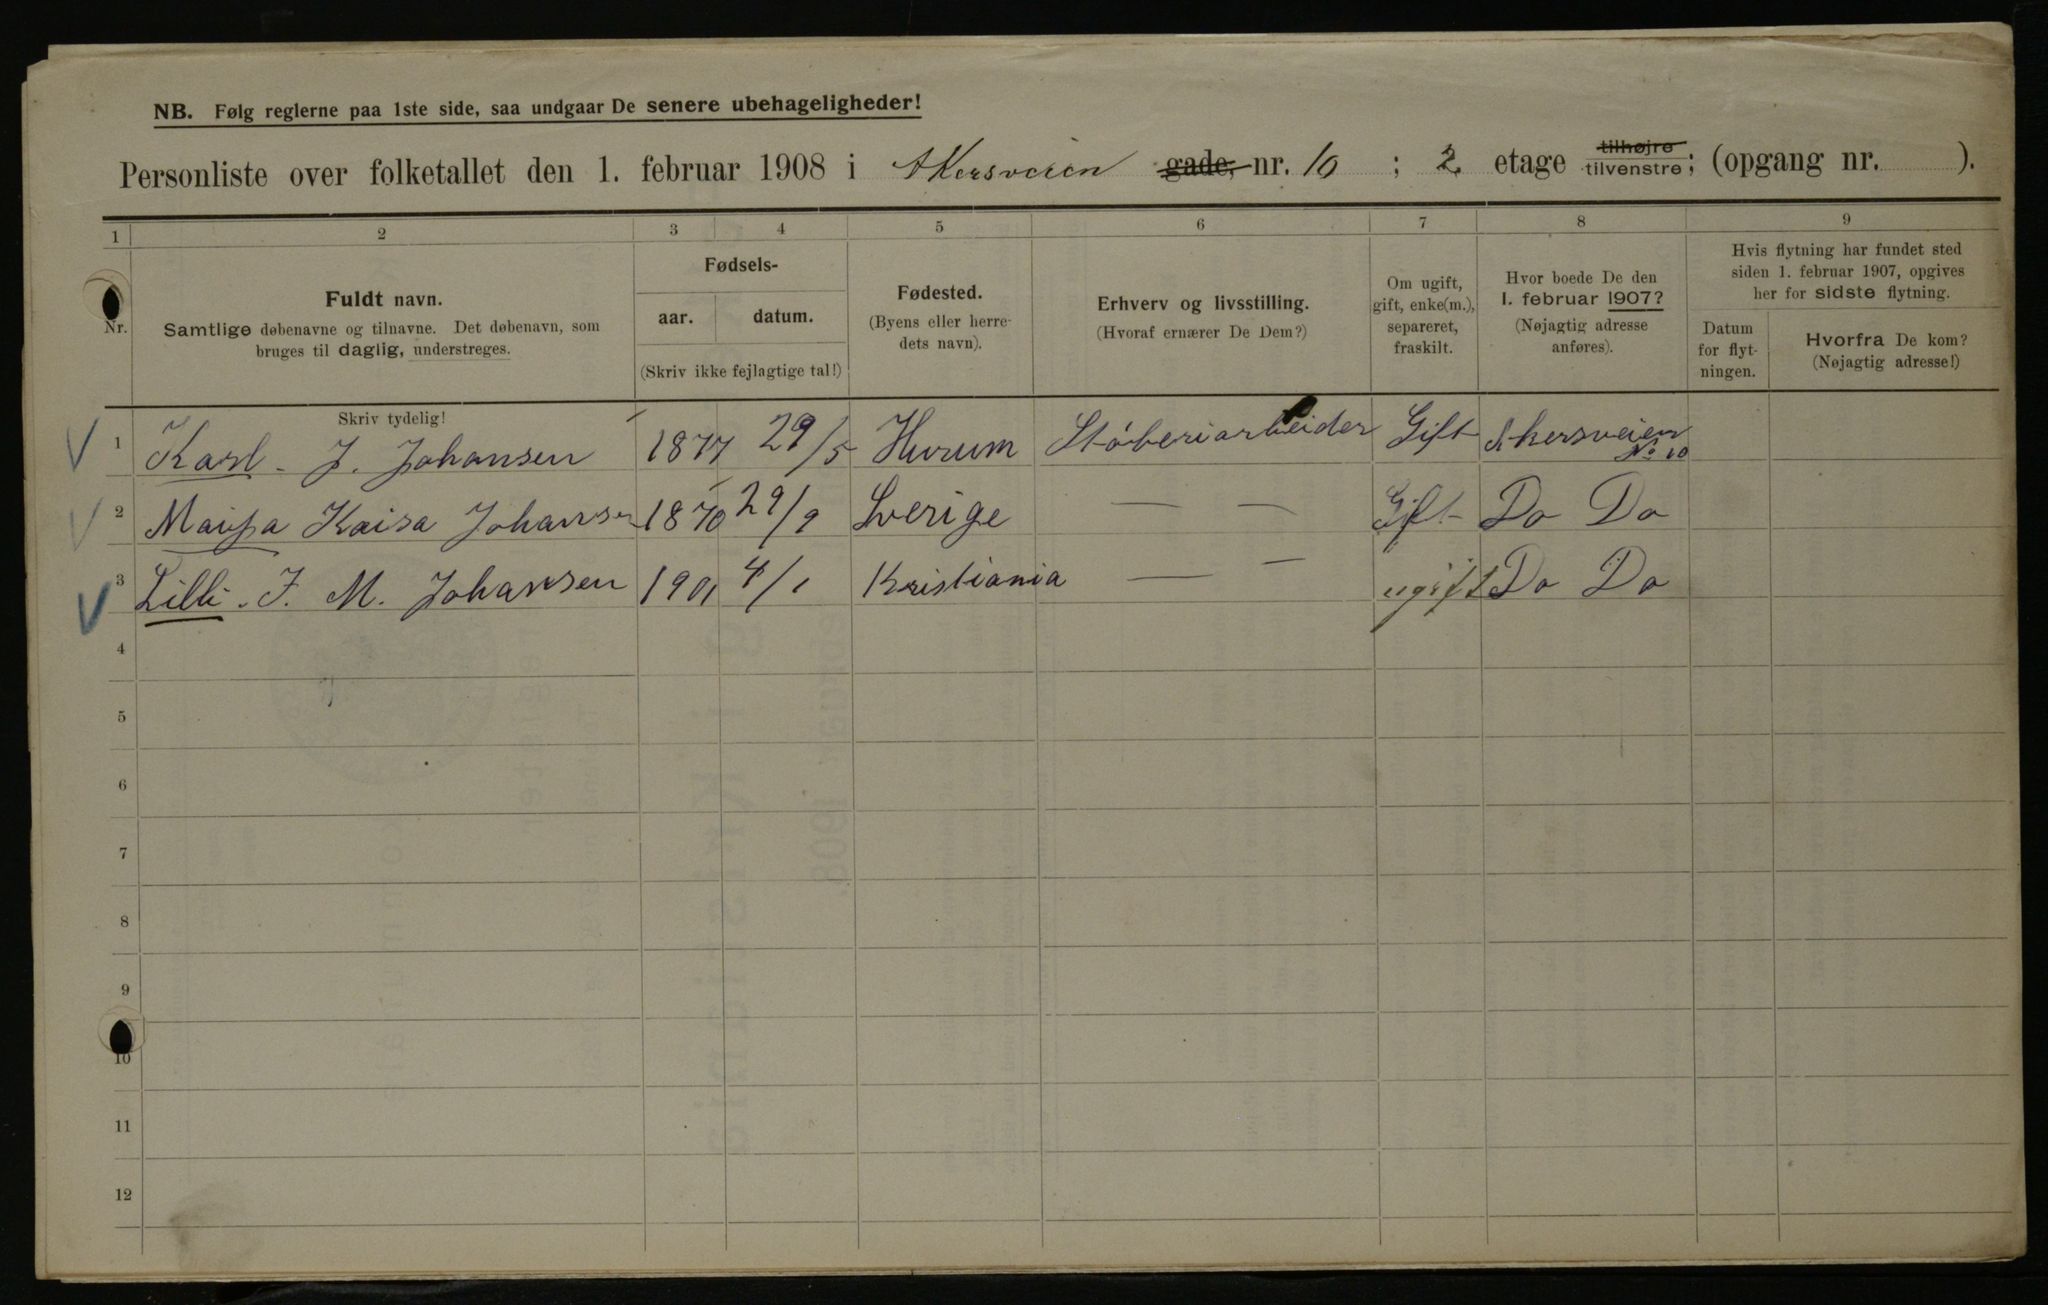 NB. Følg reglerne paa 1ste side, saa undgaar De senere ubehageligheder!
Personliste over folketallet den 1. februar 1908 i Akersveien gade, nr. 10 ; 2 etage tilhøjre tilvenstre; (opgang nr. ).
1 2 3 4 5 6 7 8 9
Nr.
Fuldt navn.
Samtlige døbenavne og tilnavne. Det døbenavn, som
bruges til daglig, understreges.
Skriv tydelig!
Fødsels-
aar. datum.
(Skriv ikke fejlagtige tal!)
Fødested.
(Byens eller herre-
dets navn).
Erhverv og livsstilling.
(Hvoraf ernærer De Dem?)
Om ugift,
gift, enke(m.),
separeret,
fraskilt.
Hvor boede De den
1. februar 1907?
(Nøjagtig adresse
anføres).
Hvis flytning har fundet sted
siden 1. februar 1907, opgives
her for sidste flytning.
Datum
for flyt-
ningen.
Hvorfra De kom?
(Nøjagtig adresse!)
1 Karl - J. Johansen 1877 29/5 Hurum Stöberiarbeider Gift Akersveien No 10
2 Kaisa Johansen 1870 29/9 Sverige — — Gift Do Do
3 Lilli. J. M. Johansen 1901 4/1 Kristiania — — ugift Do Do
4
5
6
7
8
9
10
11
12